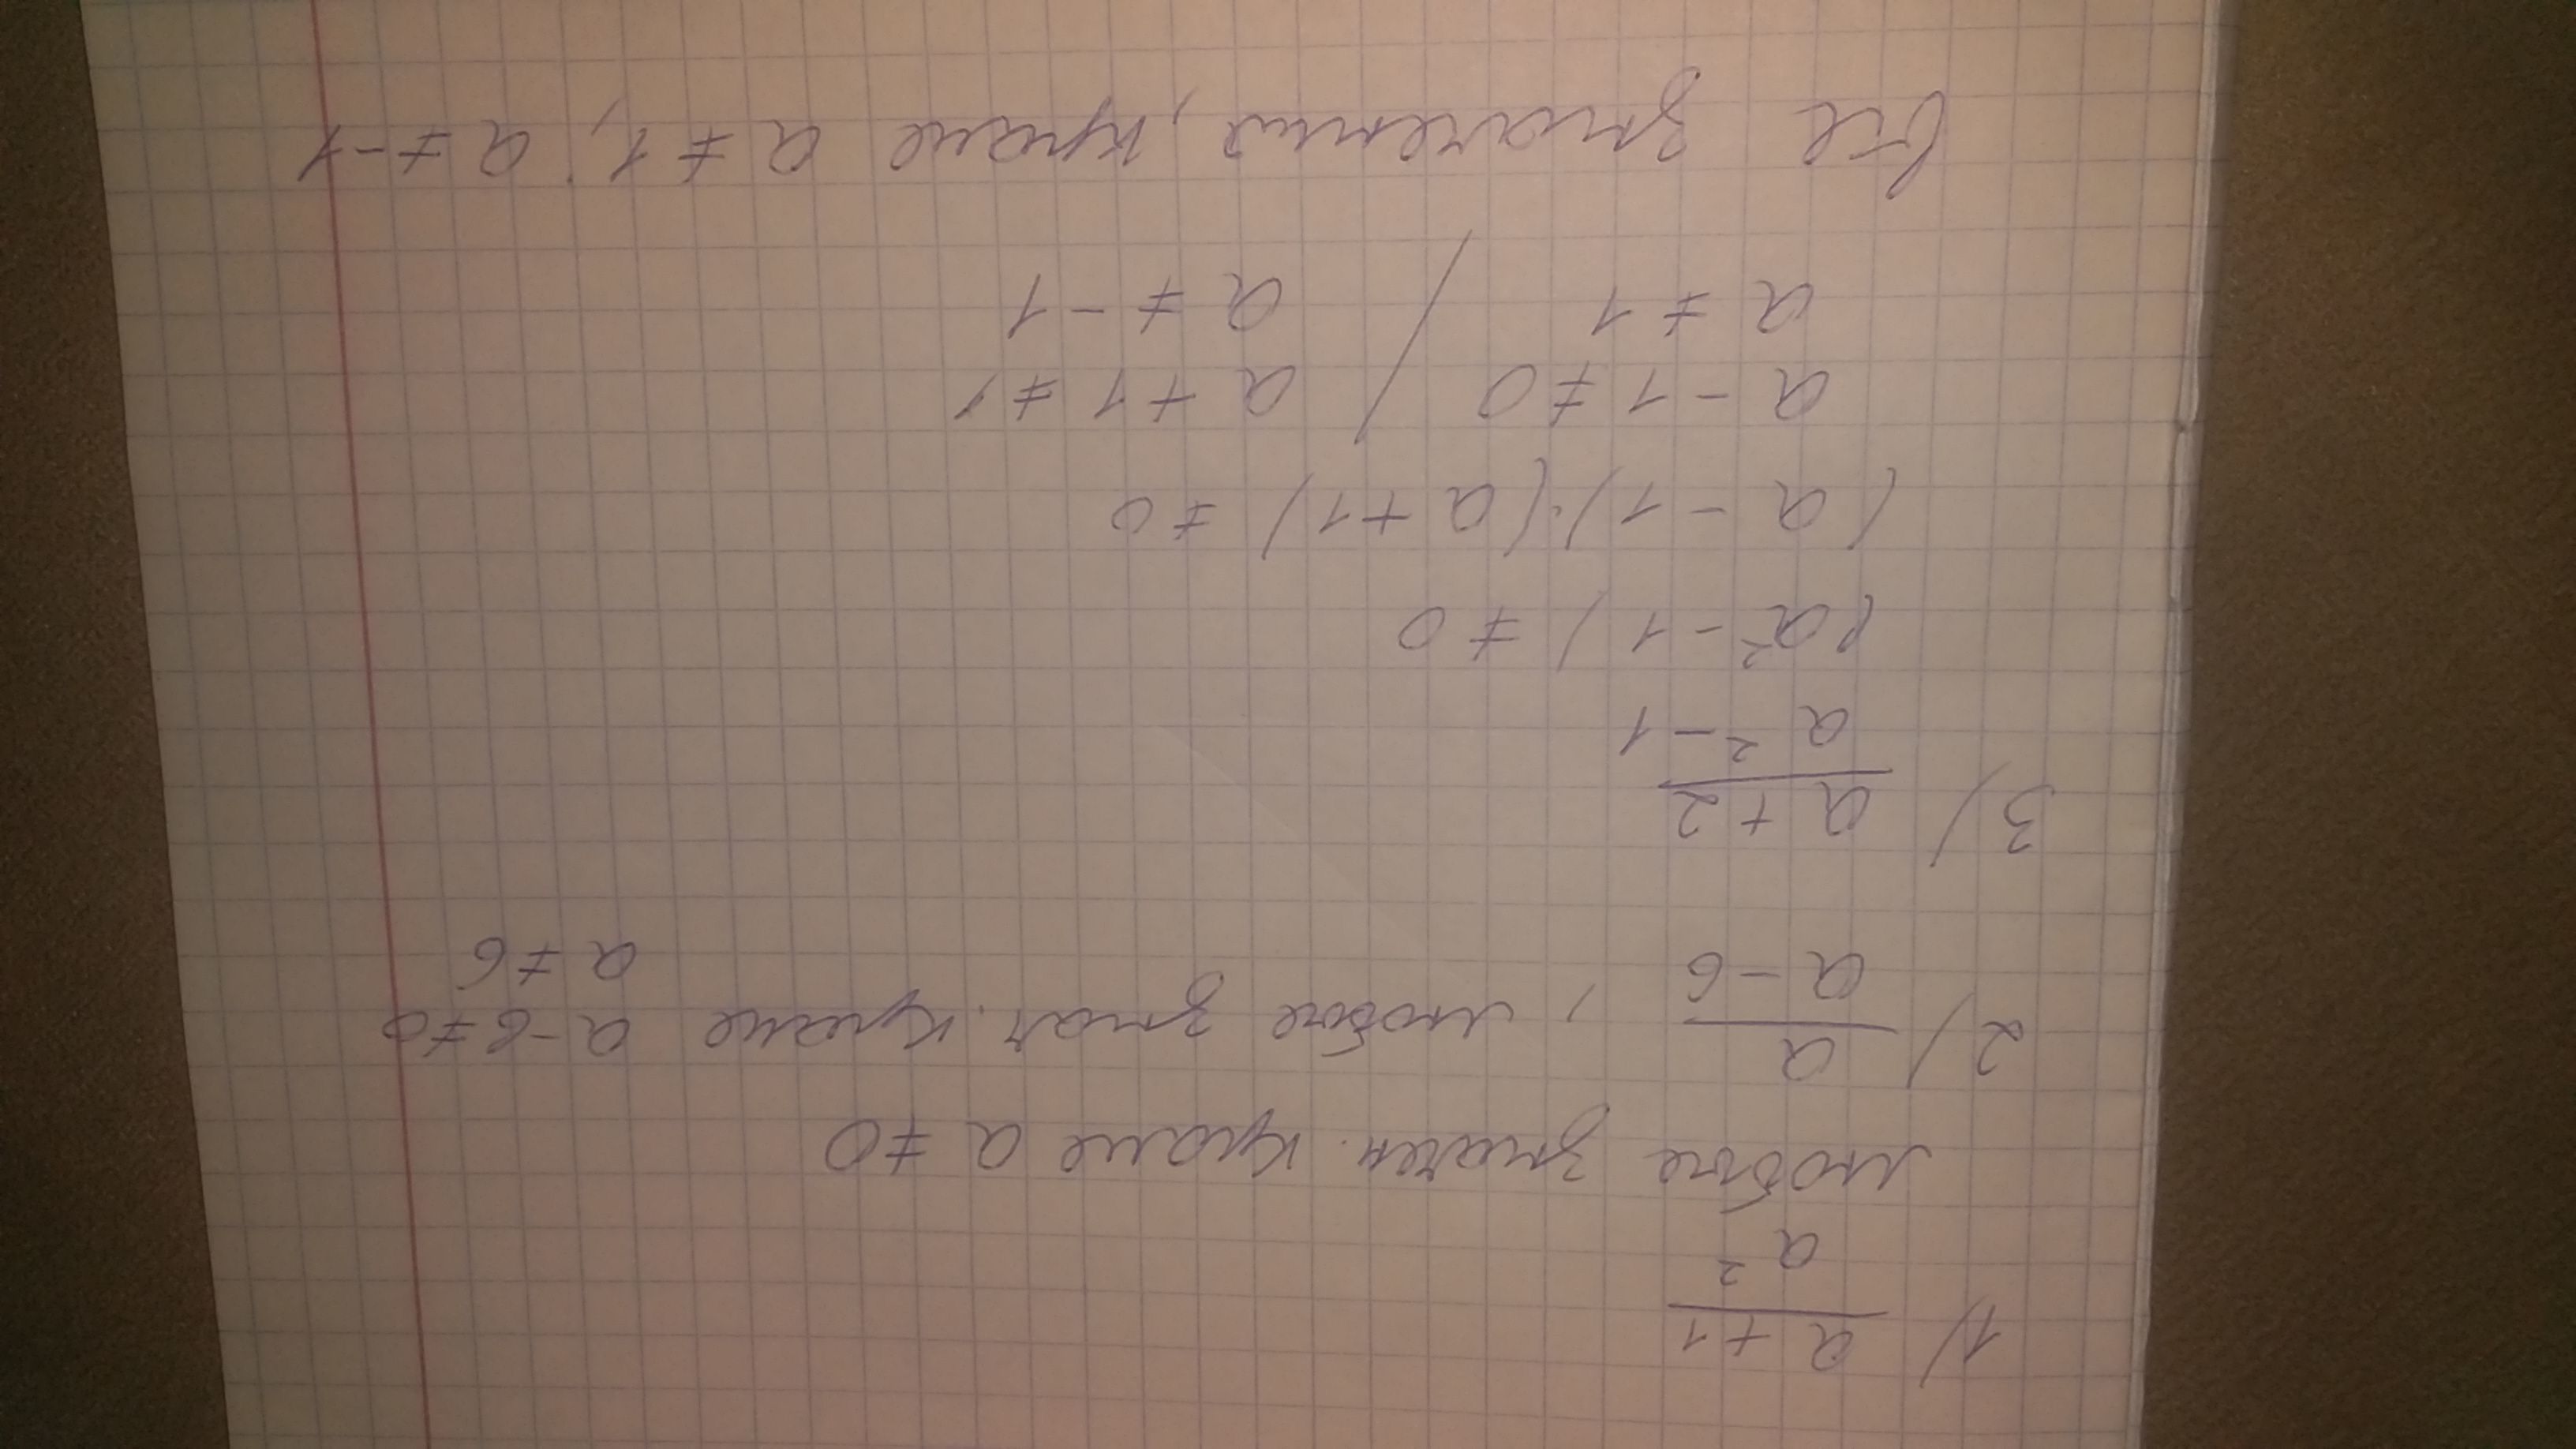 1) a+1 / a²
любые значен. кроме a ≠ 0
2) a / a-6 , любые знач. кроме a-6≠0
a ≠ 6
3) a+2 / a²-1
(a²-1) ≠ 0
(a-1)·(a+1) ≠ 0
a-1≠0 / a+1≠1
a ≠ 1 / a ≠ -1
все значения, кроме a ≠ 1, a ≠ -1